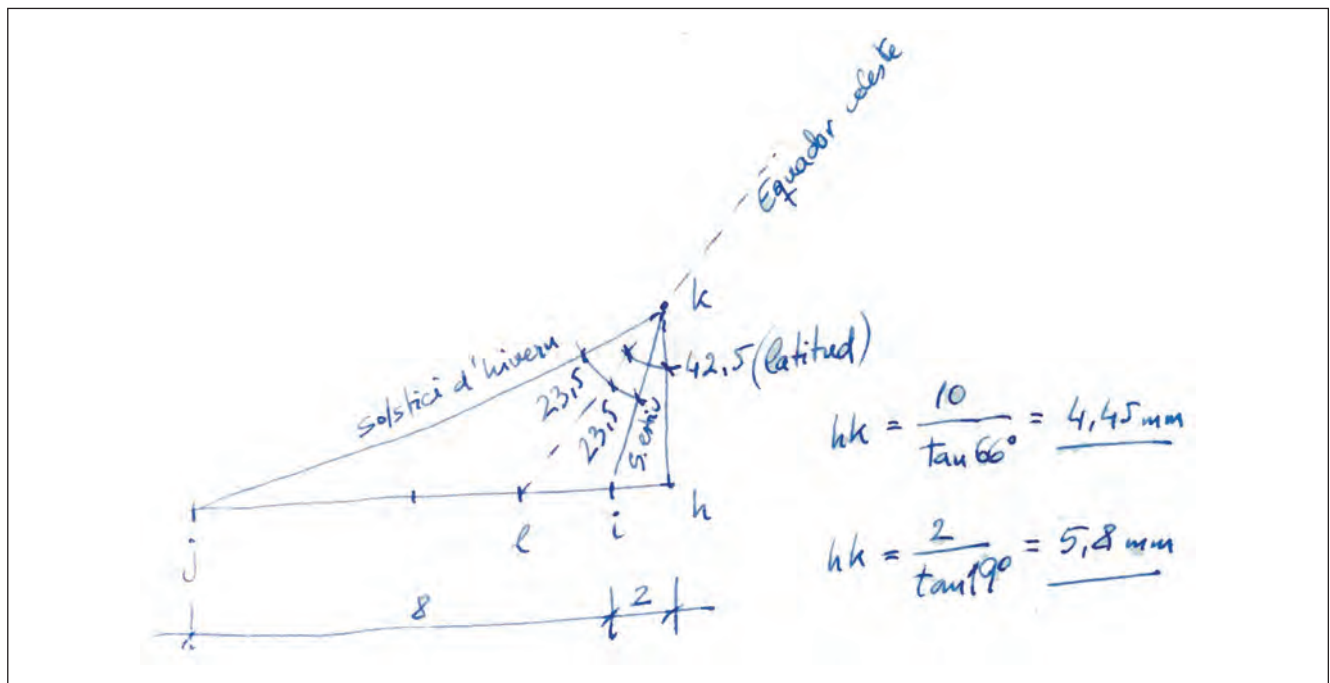 Equador celeste
k
solstici d'hivern
23,5
23,5
S. estiu
42,5 (latitud)
hk = 10 / tan 66° = 4,45 mm
j
l
i
h
hk = 2 / tan 19° = 5,8 mm
8
2